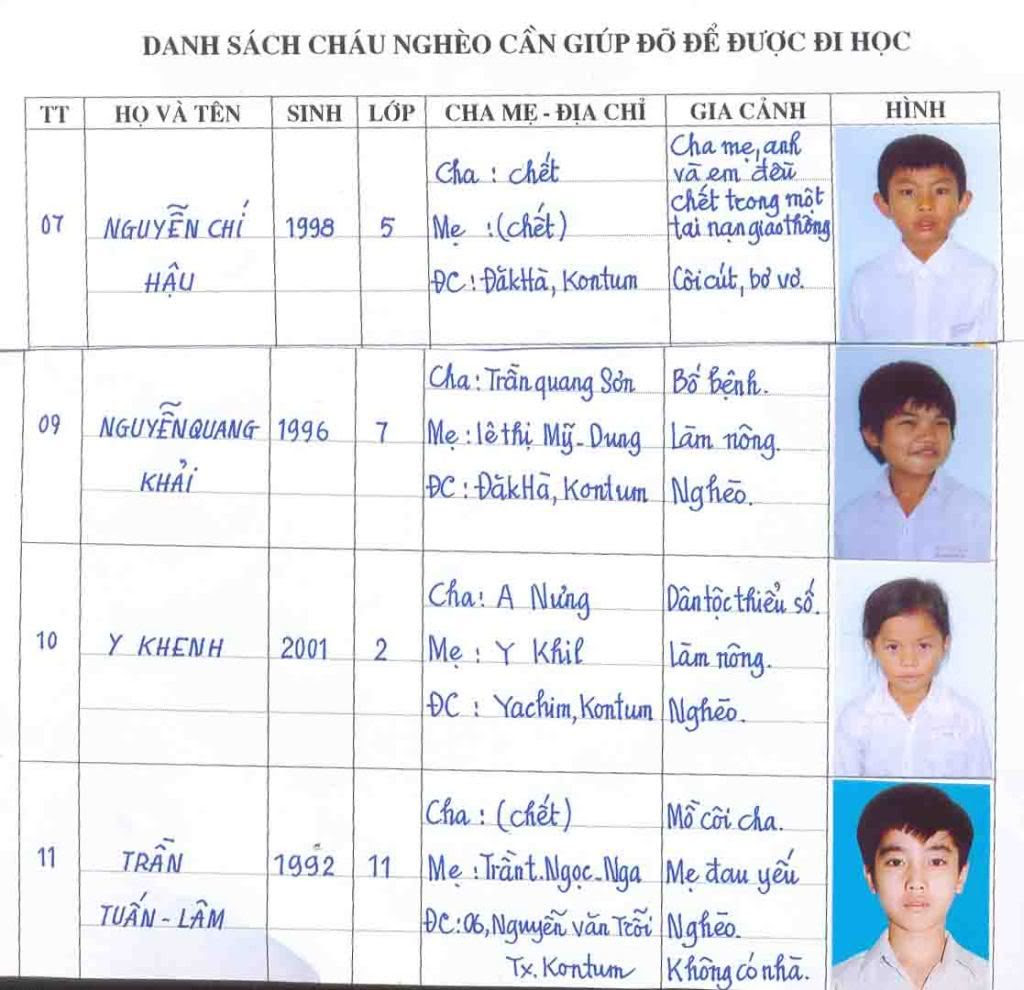 DANH SÁCH CHÁU NGHÈO CẦN GIÚP ĐỠ ĐỂ ĐƯỢC ĐI HỌC
TT HỌ VÀ TÊN SINH LỚP CHA MẸ - ĐỊA CHỈ GIA CẢNH HÌNH
07
NGUYỄN CHÍ
HẬU
1998
5
Cha : chết
Mẹ : (chết)
ĐC : ĐăkHà, Kontum
Cha mẹ, anh
và em đều
chết trong một
tai nạn giao thông
Côi cút, bơ vơ.
09
NGUYỄN QUANG
KHẢI
1996
7
Cha : Trần quang Sơn
Mẹ : lê thị Mỹ-Dung
ĐC : ĐăkHà, Kontum
Bố bệnh.
Làm nông.
Nghèo.
10
Y KHENH
2001
2
Cha : A Nưng
Mẹ : Y Khil
ĐC : Yachim, Kontum
Dân tộc thiểu số.
Làm nông.
Nghèo.
11
TRẦN
TUẤN - LÂM
1992
11
Cha : (chết)
Mẹ : Trần t. Ngọc-Nga
ĐC : 06, Nguyễn văn Trỗi
Tx. Kontum
Mồ côi cha.
Mẹ đau yếu
Nghèo.
Không có nhà.